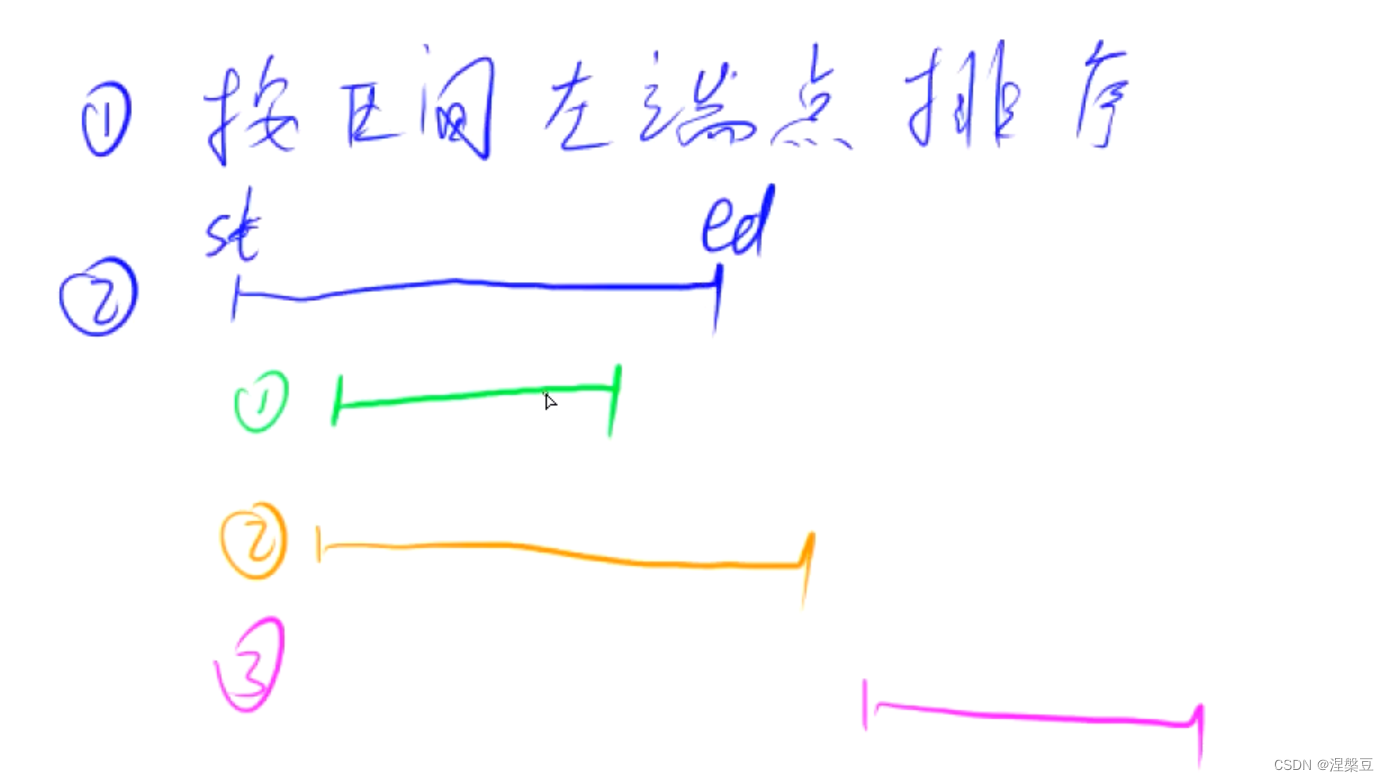 ① 按区间左端点排序
st ed
②
①
②
③
CSDN @涅槃豆